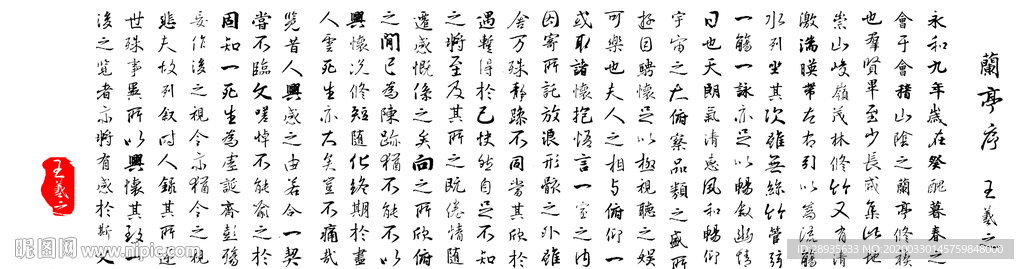 蘭亭序 王羲之
永和九年歲在癸醜暮春之
會于會稽山陰之蘭亭修禊
也羣賢畢至少長咸集此地
崇山峻嶺茂林修竹又有清
激湍暎帶左右引以為流觴
水列坐其次雖無絲竹管弦
一觴一詠亦足以暢敘幽情
日也天朗氣清惠風和暢仰
宇宙之大俯察品類之盛所
遊目騁懷足以極視聽之娛
可樂也夫人之相与俯仰一
或取諸懷抱悟言一室之內
因寄所託放浪形骸之外雖
舍万殊靜躁不同當其欣
遇蹔得於己快然自足不知
之將至及其所之既倦情隨
遷感慨係之矣向之所欣俯
之間已為陳跡猶不能不以
興懷況修短隨化終期於盡
人雲死生亦大矣豈不痛哉
覽昔人興感之由若合一契
嘗不臨文嗟悼不能喻之於
固知一死生為虛誕齊彭殤
妄作後之視今亦猶今之視
悲夫故列敘時人錄其所述
世殊事異所以興懷其致一
後之覽者亦將有感於斯文
王羲之
昵图网 www.nipic.com
ID:28935633 NO:20200330145759848000